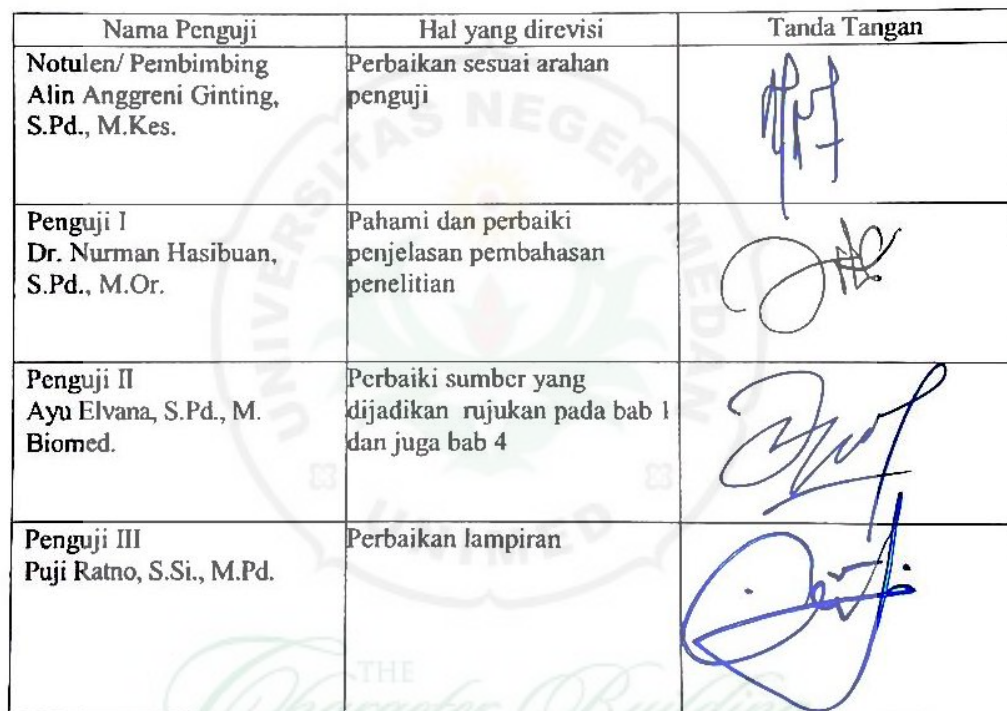 Nama Penguji Hal yang direvisi Tanda Tangan
Notulen/ Pembimbing
Alin Anggreni Ginting,
S.Pd., M.Kes.
Perbaikan sesuai arahan
penguji
Penguji I
Dr. Nurman Hasibuan,
S.Pd., M.Or.
Pahami dan perbaiki
penjelasan pembahasan
penelitian
Penguji II
Ayu Elvana, S.Pd., M.
Biomed.
Perbaiki sumber yang
dijadikan rujukan pada bab 1
dan juga bab 4
Penguji III
Puji Ratno, S.Si., M.Pd.
Perbaikan lampiran
UNIVERSITAS NEGERI MEDAN
UNIMED
THE
Character Building